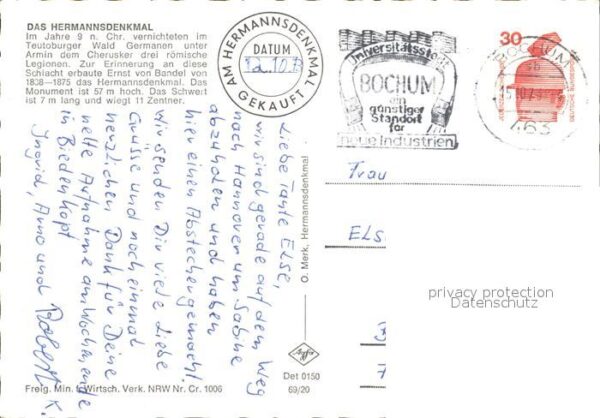 DAS HERMANNSDENKMAL
Im Jahre 9 n. Chr. vernichteten im
Teutoburger Wald Germanen unter
Armin dem Cherusker drei römische
Legionen. Zur Erinnerung an diese
Schlacht erbaute Ernst von Bandel von
1838—1875 das Hermannsdenkmal. Das
Monument ist 57 m hoch. Das Schwert
ist 7 m lang und wiegt 11 Zentner.
AM HERMANNSDENKMAL
DATUM
GEKAUFT
Universitätsstadt
BOCHUM
ein
günstiger
Standort
für
neue Industrien
30
BOCHUM
463
Liebe Tante Else,
wir sind gerade auf dem Weg
nach Hannover um Sabine
abzuholen und haben
hier einen Abstecher gemacht.
Wir senden Dir viele liebe
Grüße und noch einmal
herzlichen Dank für Deine
nette Aufnahme am Wochenende
in Biedenkopf
Ingrid, Arno und Robert K.
O. Merk, Hermannsdenkmal
Frau
ELS
privacy protection
Datenschutz
Agfa
Det 0150
69/20
Freig. Min. f. Wirtsch. Verk. NRW Nr. Cr. 1006